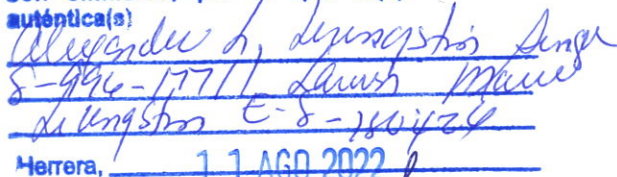 auténtica(s)
Alexander L, Livingston Singer
8-996-1771 Lauren Marie
Livingston E-8-180424
Herrera, 11 AGO 2022